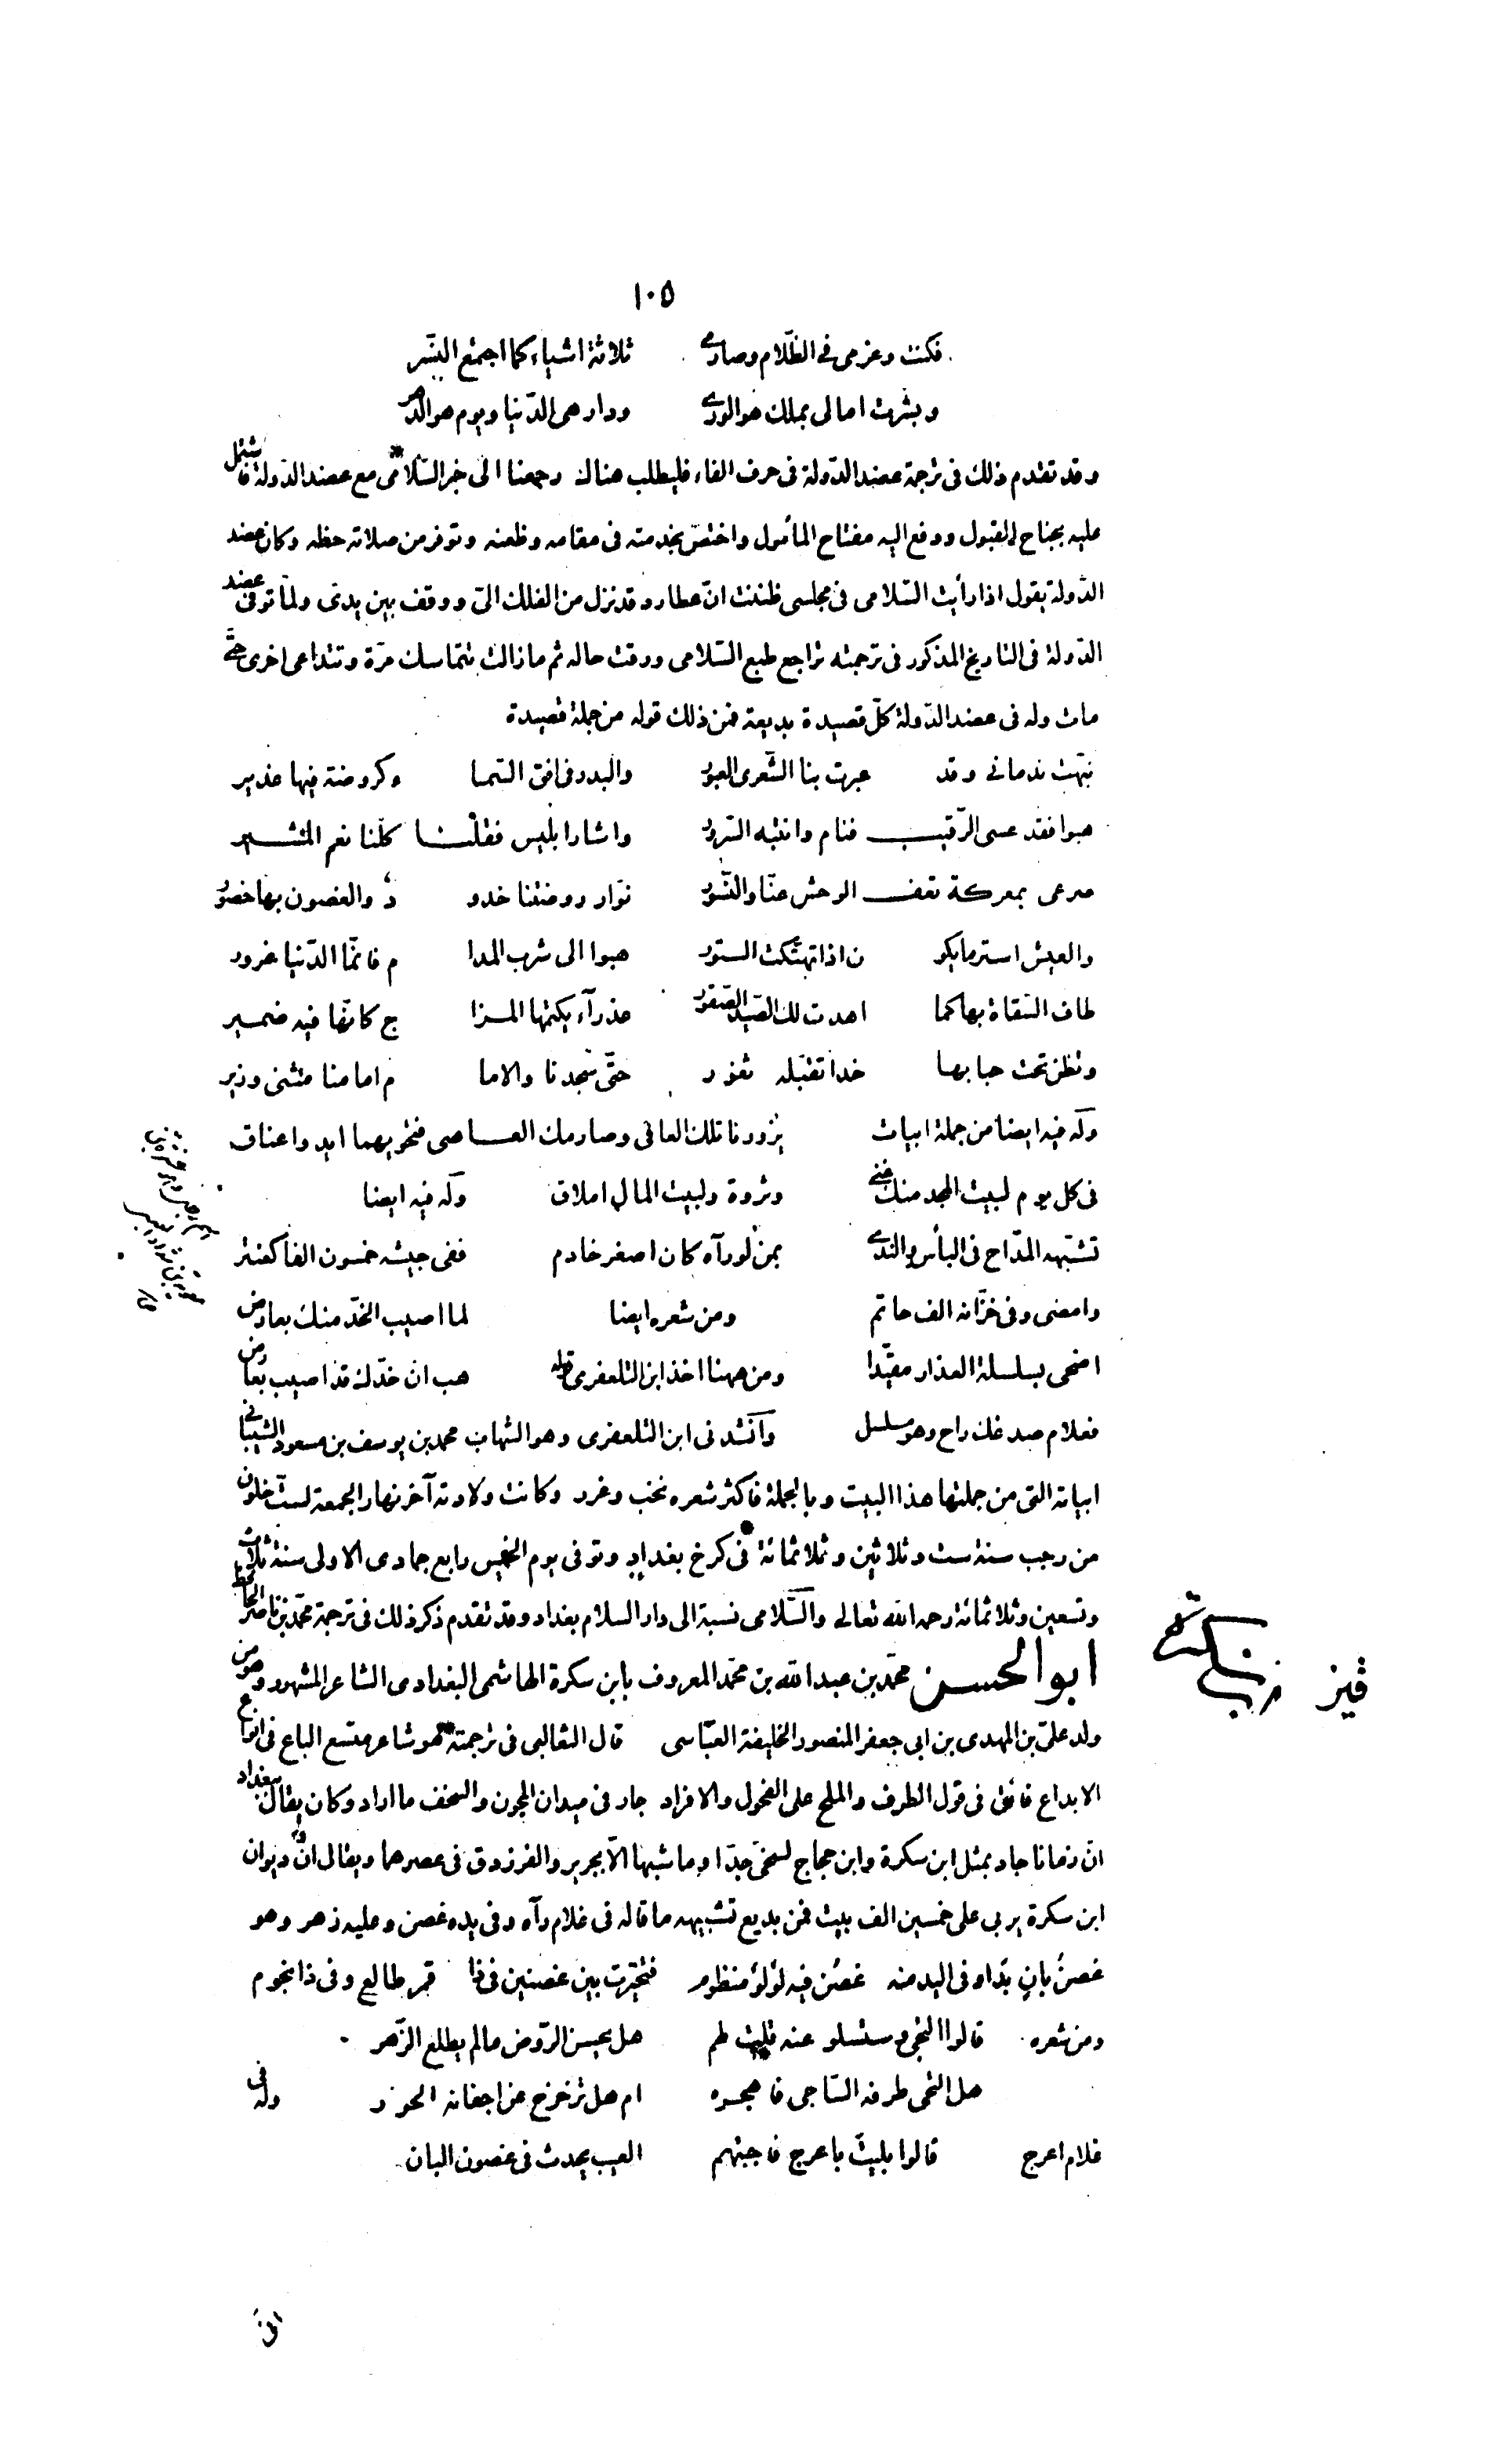 ١٠٥
فكنت وعزمى فى الظّلام وصارمى ثلاثة اشياء كما اجتمع النسر
وبشرت امالى بملك هو الورى ودار هى الدّنيا ويوم هو الدّهر
وقد تقدم ذلك فى ترجمة عضد الدّولة فى حرف الفاء فليطلب هناك رجعنا الى خبر السّلامى مع عضد الدّولة فاشتمل
عليه بجناح القبول ودفع اليه مفتاح المأمول واختصّ بخدمته فى مقامه وظعنه وتوفر من صلاته حظه وكان عضد
الدّولة يقول اذا رأيت السّلامى فى مجلسى ظننت انّ عطارد قد نزل من الفلك الىّ ووقف بين يدىّ ولمّا توفى عضد
الدّولة فى التاريخ المذكور فى ترجمته تراجع طبع السّلامى ورقت حاله ثم ما زالت تتماسك مرّة وتتداعى اخرى حتّى
مات وله فى عضد الدّولة كلّ قصيدة بديعة فمن ذلك قوله من جملة قصيدة
نبّهت ندمانى وقد عبرت بنا الشّعرى العبور والبدر فى افق السّما وكروضة فيها غدير
هبوا فقد عسى الرّقيب فنام وانتبه السّرور واشار ابليس فقلنا كلّنا نعم المشير
صرعى بمعركة تعف الوحش عنّا والنّسور نوّار روضتنا خدو د والغصون بها خصور
والعيش استر ما يكو ن اذا تهتّكت الستور هبوا الى شرب المدا م فانمّا الدّنيا غرور
طاف السّقاة بها كما اهدت لك الصّيد الصّقور عذرآء يكتمها المزا ج كانّها فيه ضمير
وتظن تحت حبابها خدا تقبّله ثغور حتّى سجدنا والاما م امامنا مثنى وزير
وله فيه ايضا من جملة ابيات يزور نائلك العافى وصارمك العاصى فتحويهما ايد واعناق
فى كل يوم لبيت المجد منك غنى وثروة ولبيت المال املاق وله فيه ايضا
تشبّهه المدّاح فى البأس والندى بمن لورآه كان اصغر خادم ففى جيشه خمسون الفا كعنتر
وامضى وفى خزّانه الف حاتم ومن شعره ايضا لما اصيب الخدّ منك بعارض
اضحى بسلسلة العذار مقيّدا ومن ههنا اخذ ابن التلعفرى قوله هب انّ خدّك قد اصيب بعارض
فعلام صدغك راح وهو مسلسل وانشدنى ابن التلعفرى وهو الشهاب محمد بن يوسف بن مسعود الشيبانى
ابياته التى من جملتها هذا البيت وبالجملة فاكثر شعره نخب وغرر وكانت ولادته آخر نهار الجمعة لستّ خلون
من رجب سنة ست وثلاثين وثلاثمائة فى كرخ بغداد وتوفى يوم الخميس رابع جمادى الاولى سنة ثلاث
وتسعين وثلاثمائة رحمه الله تعالى والسّلامى نسبة الى دار السلام بغداد وقد تقدم ذكر ذلك فى ترجمة محمّد بن ناصر الحافظ
ابو الحسن محمّد بن عبد الله بن محمّد المعروف بابن سكرة الهاشمى البغدادى الشاعر المشهور وهو من
ولد علىّ بن المهدى بن ابى جعفر المنصور الخليفة العبّاسى قال الثعالبى فى ترجمته هو شاعر متسع الباع فى انواع
الابداع فائق فى قول الطرف والملح على الفحول والافراد جار فى ميدان المجون والسخف ما اراد وكان يقال ببغداد
انّ زمانا جاد بمثل ابن سكرة وابن حجاج لسخىّ جدّا وما شبها الّا بجرير والفرزدق فى عصرهما ويقال انّ ديوان
ابن سكرة يربى على خمسين الف بيت فمن بديع تشبيهه ما قاله فى غلام رآه وفى يده غصن وعليه زهر وهو
غصن بان بدا وفى اليد منه غصن فيه لؤلؤ منظوم فتحيّرت بين غصنين فى ذا قمر طالع وفى ذا نجوم
ومن شعره قالوا التحى وستسلو عنه قلت لهم هل يحسن الرّوض ما لم يطلع الزّهر
هل التحى طرفه السّاجى فاهجره ام هل تزحزح عن اجفانه الحور وله فى
غلام اعرج قالوا بليت باعرج فاجبتهم العيب يحدث فى غصون البان